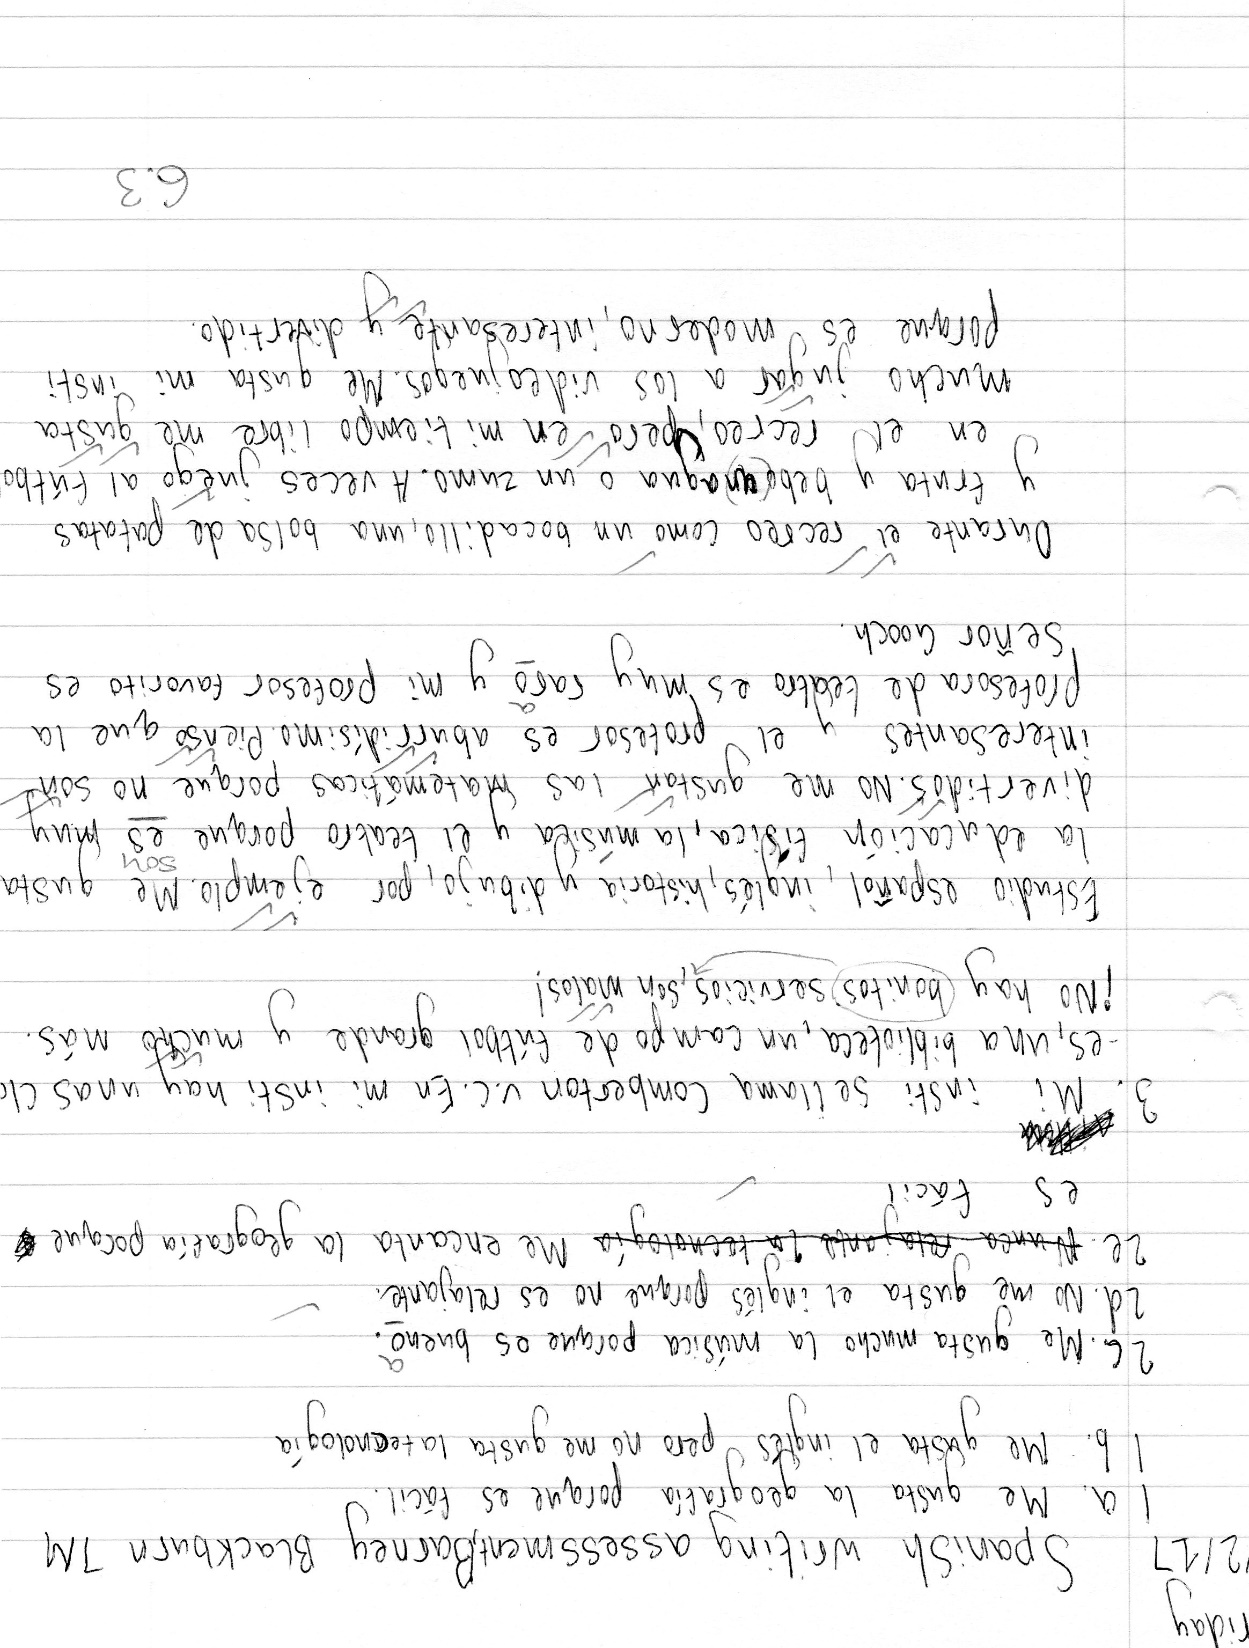 riday
2/17 Spanish writing assessment Barney Blackburn 7M
1 a. Me gusta la geografía porque es fácil.
1 b. Me gusta el inglés pero no me gusta la tecnología
a
2 c. Me gusta mucho la música porque es bueno.
2 d. No me gusta el inglés porque no es relajante.
2 e. Nunca relajante la tecnología Me encanta la geografía porque
es fácil
3. Mi insti se llama Comberton V.C. En mi insti hay unas cla
-es, una biblioteca, un campo de fútbol grande y mucho más.
¡No hay bonitos servicios, son malos!
Estudio español, inglés, historia y dibujo, por ejemplo. Me gusta
son
la educación física, la música y el teatro porque es muy
divertidos. No me gustan las matemáticas porque no son
interesantes y el profesor es aburridísimo. Pienso que la
a
profesora de teatro es muy raro y mi profesor favorito es
Señor Gooch.
Durante el recreo como un bocadillo, una bolsa de patatas
y fruta y bebo un agua o un zumo. A veces juego al fútbo
en el recreo, pero en mi tiempo libre me gusta
mucho jugar a los videojuegos. Me gusta mi insti
porque es moderno, interesante y divertido.
6.3